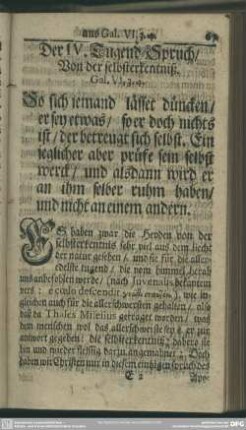 aus Gal. VI, 3. 4.
Der IV. Tugend Spruch/
Von der selbsterkentniß.
Gal. VI, 3. 4.
So sich iemand lässet düncken/
er sey etwas/ so er doch nichts
ist/ der betreugt sich selbst. Ein
jeglicher aber prüfe sein selbst
werck/ und alsdann wird er
an ihm selber ruhm haben/
und nicht an einem andern.
ES haben zwar die Heyden von der
selbsterkentnis sehr viel aus dem liecht
der natur gesehen/ und sie für die aller-
edelste tugend/ die vom himmel herab
uns anbefohlen werde/ (nach Juvenalis bekantem
vers: è cœlo descendit γνῶθι σεαυτόν), wie in-
gleichen auch für die allerschwerste gehalten/ also
daß da Thales Milesius gefraget worden/ was
dem menschen wol das allerschwerste sey? er zur
antwort gegeben: die selbsterkentniß; dahero sie
hin und wieder fleissig darzu angemahnet. Doch
haben wir Christen nur in diesem einigen spruch des
E 2
Apo-